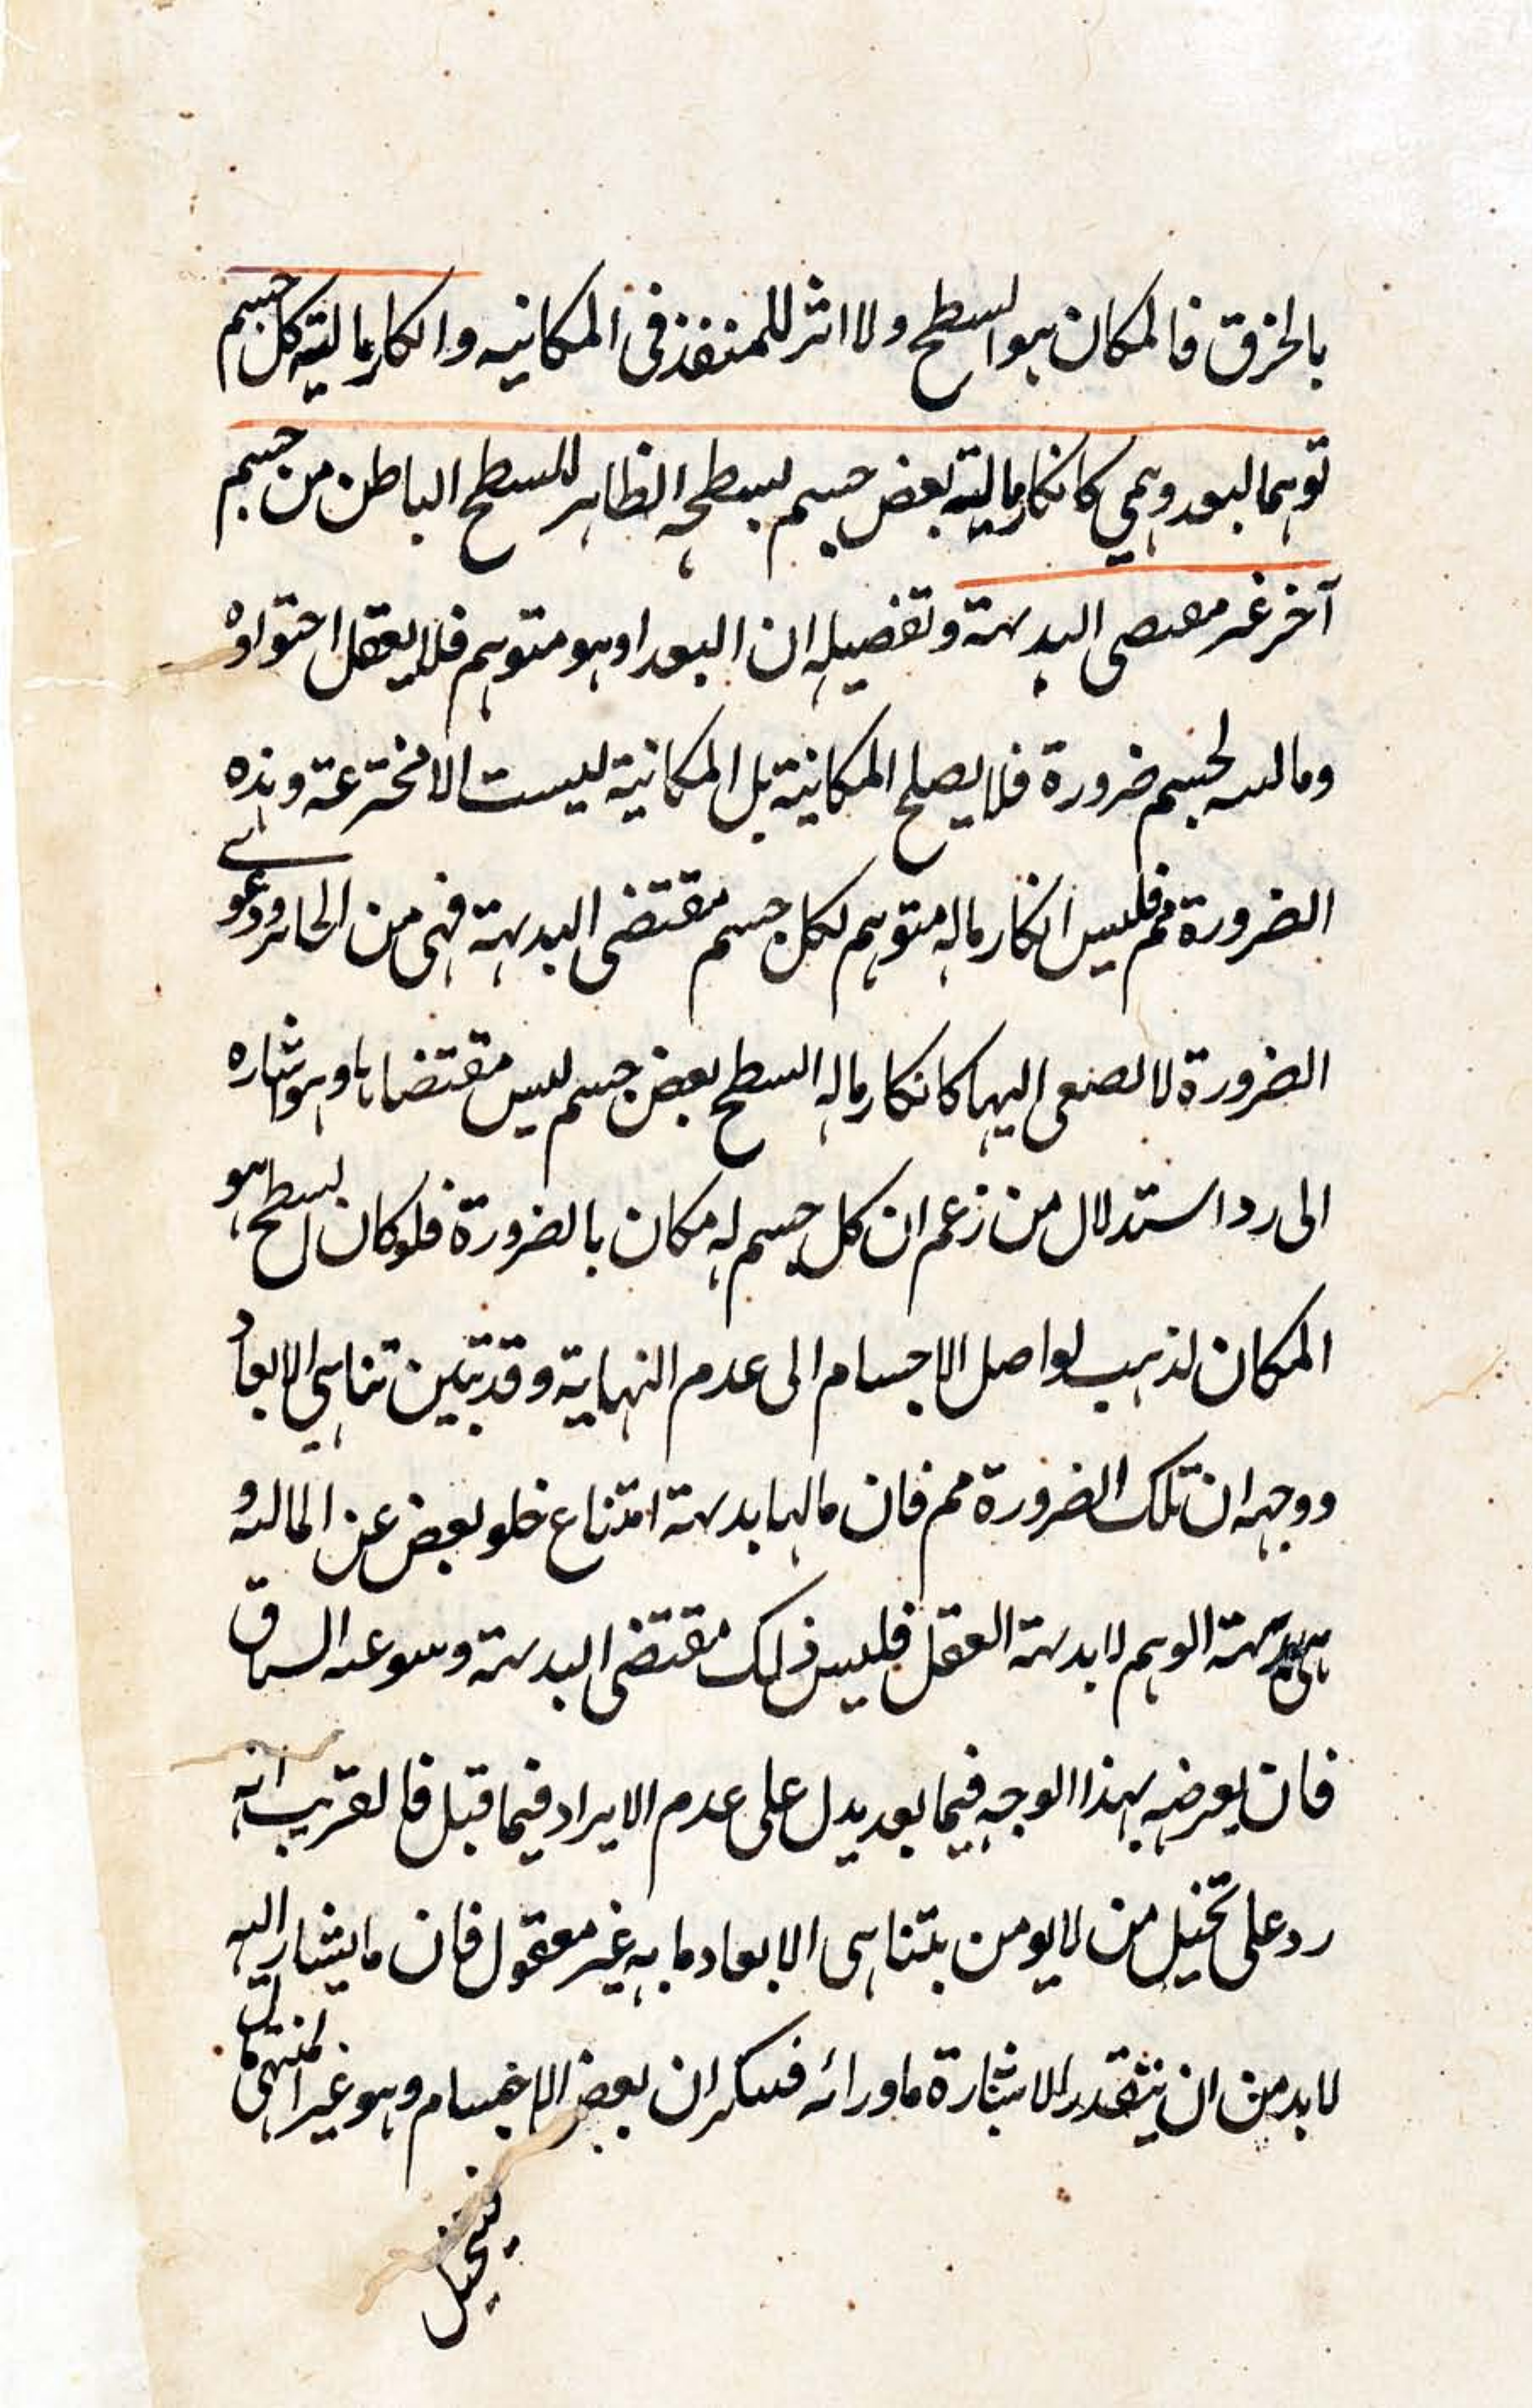 بالخرق فالمكان هو السطح ولا اثر للمنفذ فى المكانيه وانكار مالية كل جسم
توهما لبعد وهمي كانكار مالية بعض جسم لسطحه الظاهر للسطح الباطن من جسم
آخر غير مقتضى البديهة وتفصيله ان البعد اذ هو متوهم فلا يعقل احتواؤه
وماليه لجسم ضرورة فلا يصلح المكانية بل المكانية ليست الا مخترعة وهذه
الضرورة مم فليس انكار ماله متوهم لكل جسم مقتضى البديهة فهى من الحائر ودعوے
الضرورة لا تصغى اليها كانكار ماله السطح بعض جسم ليس مقتضاها وهو اشاره
الى رد استدلال من زعم ان كل جسم له مكان بالضرورة فلو كان السطح هو
المكان لذهب تواصل الاجسام الى عدم النهاية وقد تبين تناهي الابعاد
ووجهه ان تلك الضرورة مم فان مالها بديهة امتناع خلو بعض عن الماليه و
هى بديهة الوهم لا بديهة العقل فليس ذلك مقتضى البديهة وسوعه السياق
فان تعرضه بهذا الوجه فيما بعد يدل على عدم الايراد فيما قبل فالتقريب انه
رد على تخيل من لا يومن بتناهى الابعاد ما به غير معقول فان ما يشار اليه
لا بد من ان يتقدر الاشارة ما ورائه فينكر ان بعض الاجسام وهو غير المنتهى مما ل
يتخيل